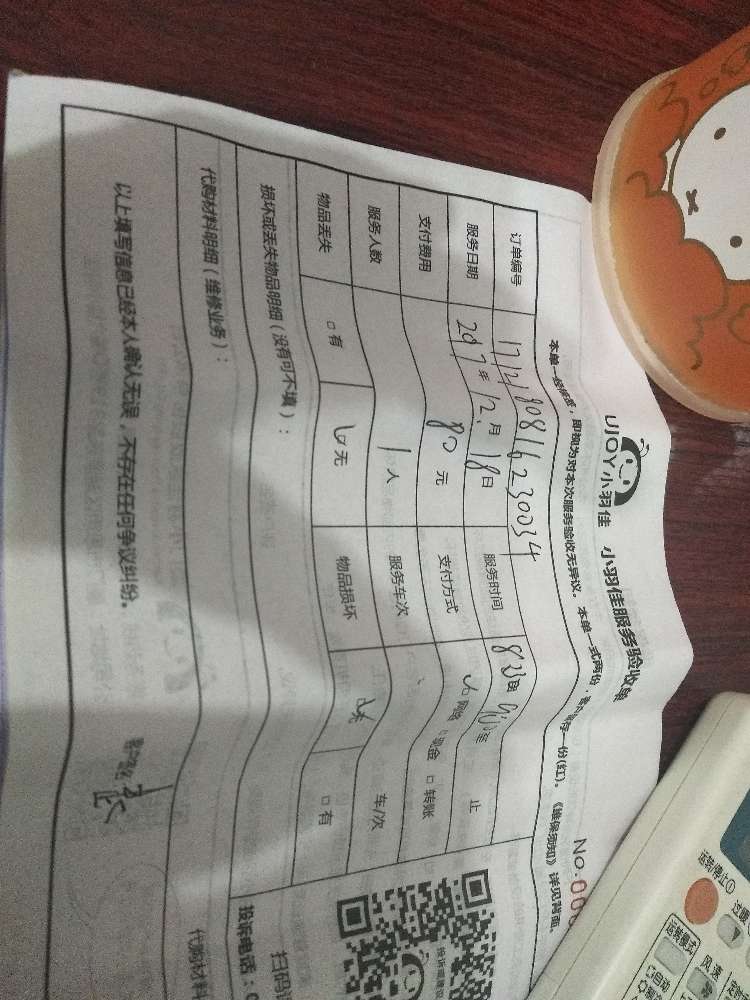 UJOY小羽佳 小羽佳服务验收单
No.000
本单一经签收，即视为对本次服务验收无异议。本单一式两份，客户留存一份(红)。《维保须知》详见背面。
订单编号 1712180816230034 服务时间 8:33由 至 止
服务日期 2017年12月18日 支付方式 网络 □现金 □转账
支付费用 80元 服务车次 车/次
服务人数 1人
物品丢失 □有 无 物品损坏 无 □有
损坏或丢失物品明细（没有可不填）：
代购材料明细（维修业务）：
以上填写信息已经本人确认无误，不存在任何争议纠纷。
客户签名
扫码
投诉电话：
代购材料
运转/停止
运转模式
风速
自动